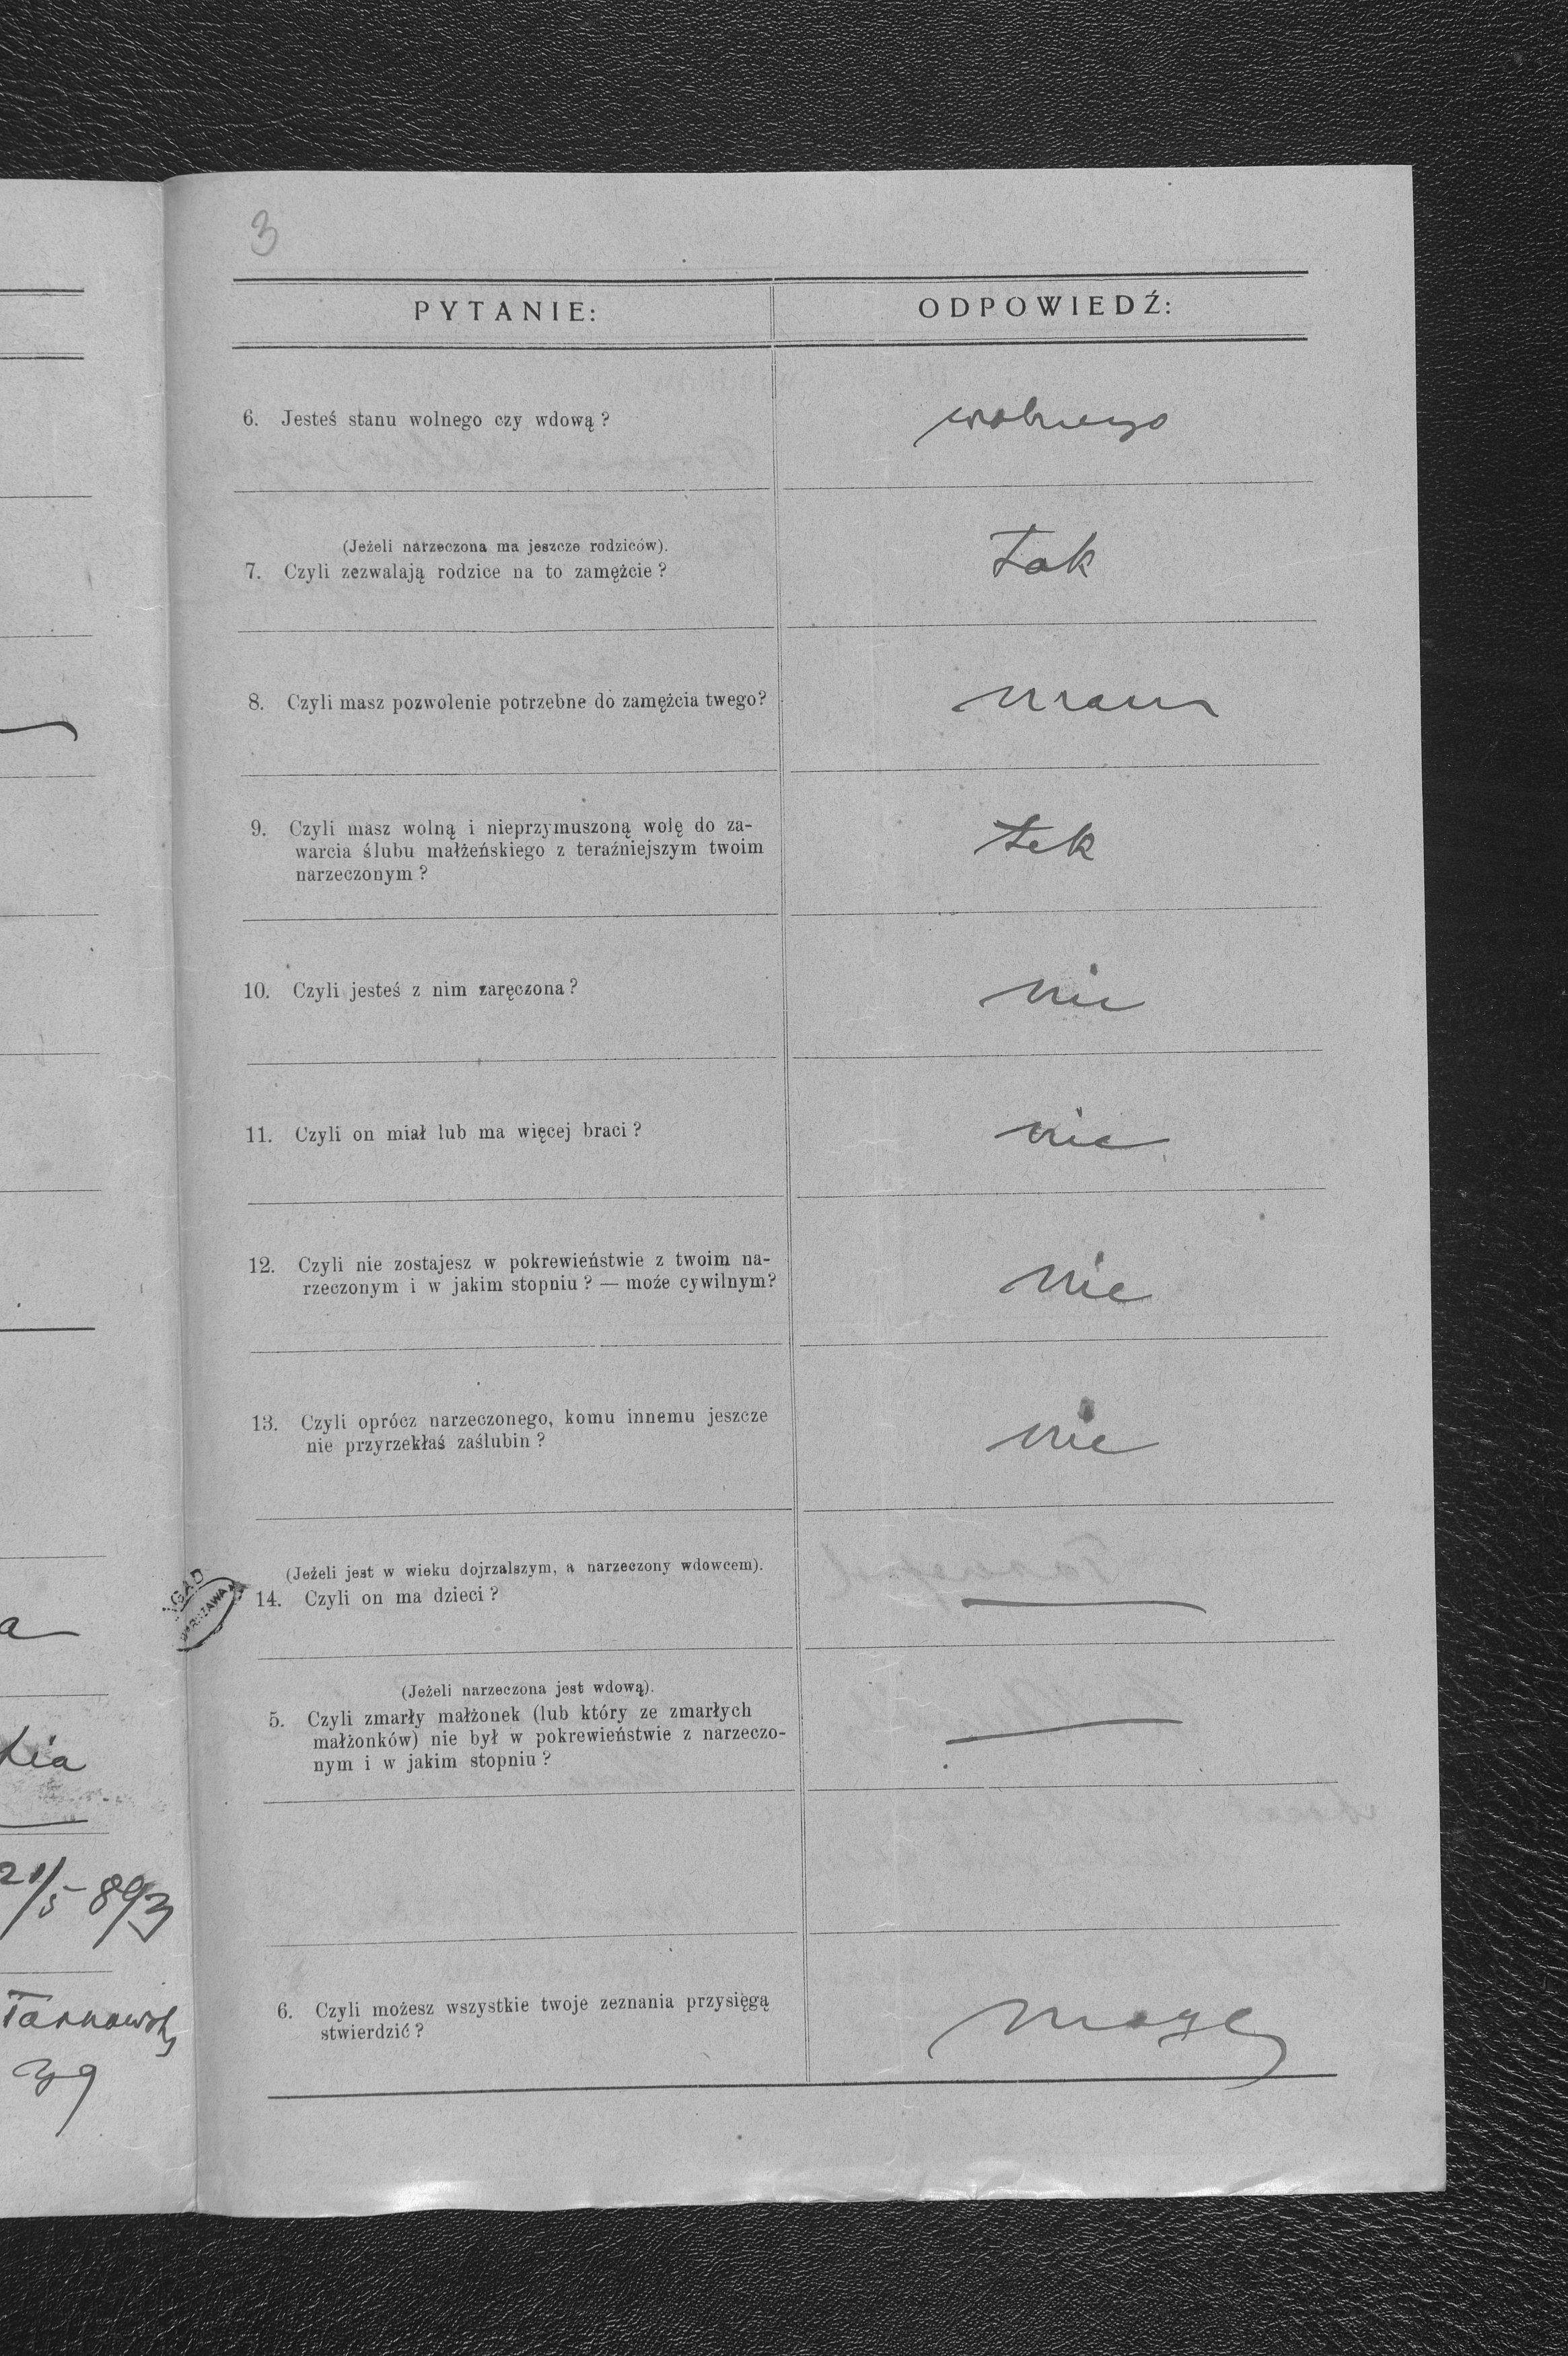 3
PYTANIE:
ODPOWIEDŹ:
6. Jesteś stanu wolnego czy wdową?
wolnego
(Jeżeli narzeczona ma jeszcze rodziców).
7. Czyli zezwalają rodzice na to zamężcie?
Tak
8. Czyli masz pozwolenie potrzebne do zamężcia twego?
mam
9. Czyli masz wolną i nieprzymuszoną wolę do za-
warcia ślubu małżeńskiego z teraźniejszym twoim
narzeczonym?
tak
10. Czyli jesteś z nim zaręczona?
nie
11. Czyli on miał lub ma więcej braci?
nie
12. Czyli nie zostajesz w pokrewieństwie z twoim na-
rzeczonym i w jakim stopniu? — może cywilnym?
nie
13. Czyli oprócz narzeczonego, komu innemu jeszcze
nie przyrzekłaś zaślubin?
nie
(Jeżeli jest w wieku dojrzalszym, a narzeczony wdowcem).
14. Czyli on ma dzieci?
AGAD
WARSZAWA
(Jeżeli narzeczona jest wdową).
5. Czyli zmarły małżonek (lub który ze zmarłych
małżonków) nie był w pokrewieństwie z narzeczo-
nym i w jakim stopniu?
6. Czyli możesz wszystkie twoje zeznania przysięgą
stwierdzić?
mogę
a
21/5 893
Tarnowsk
39